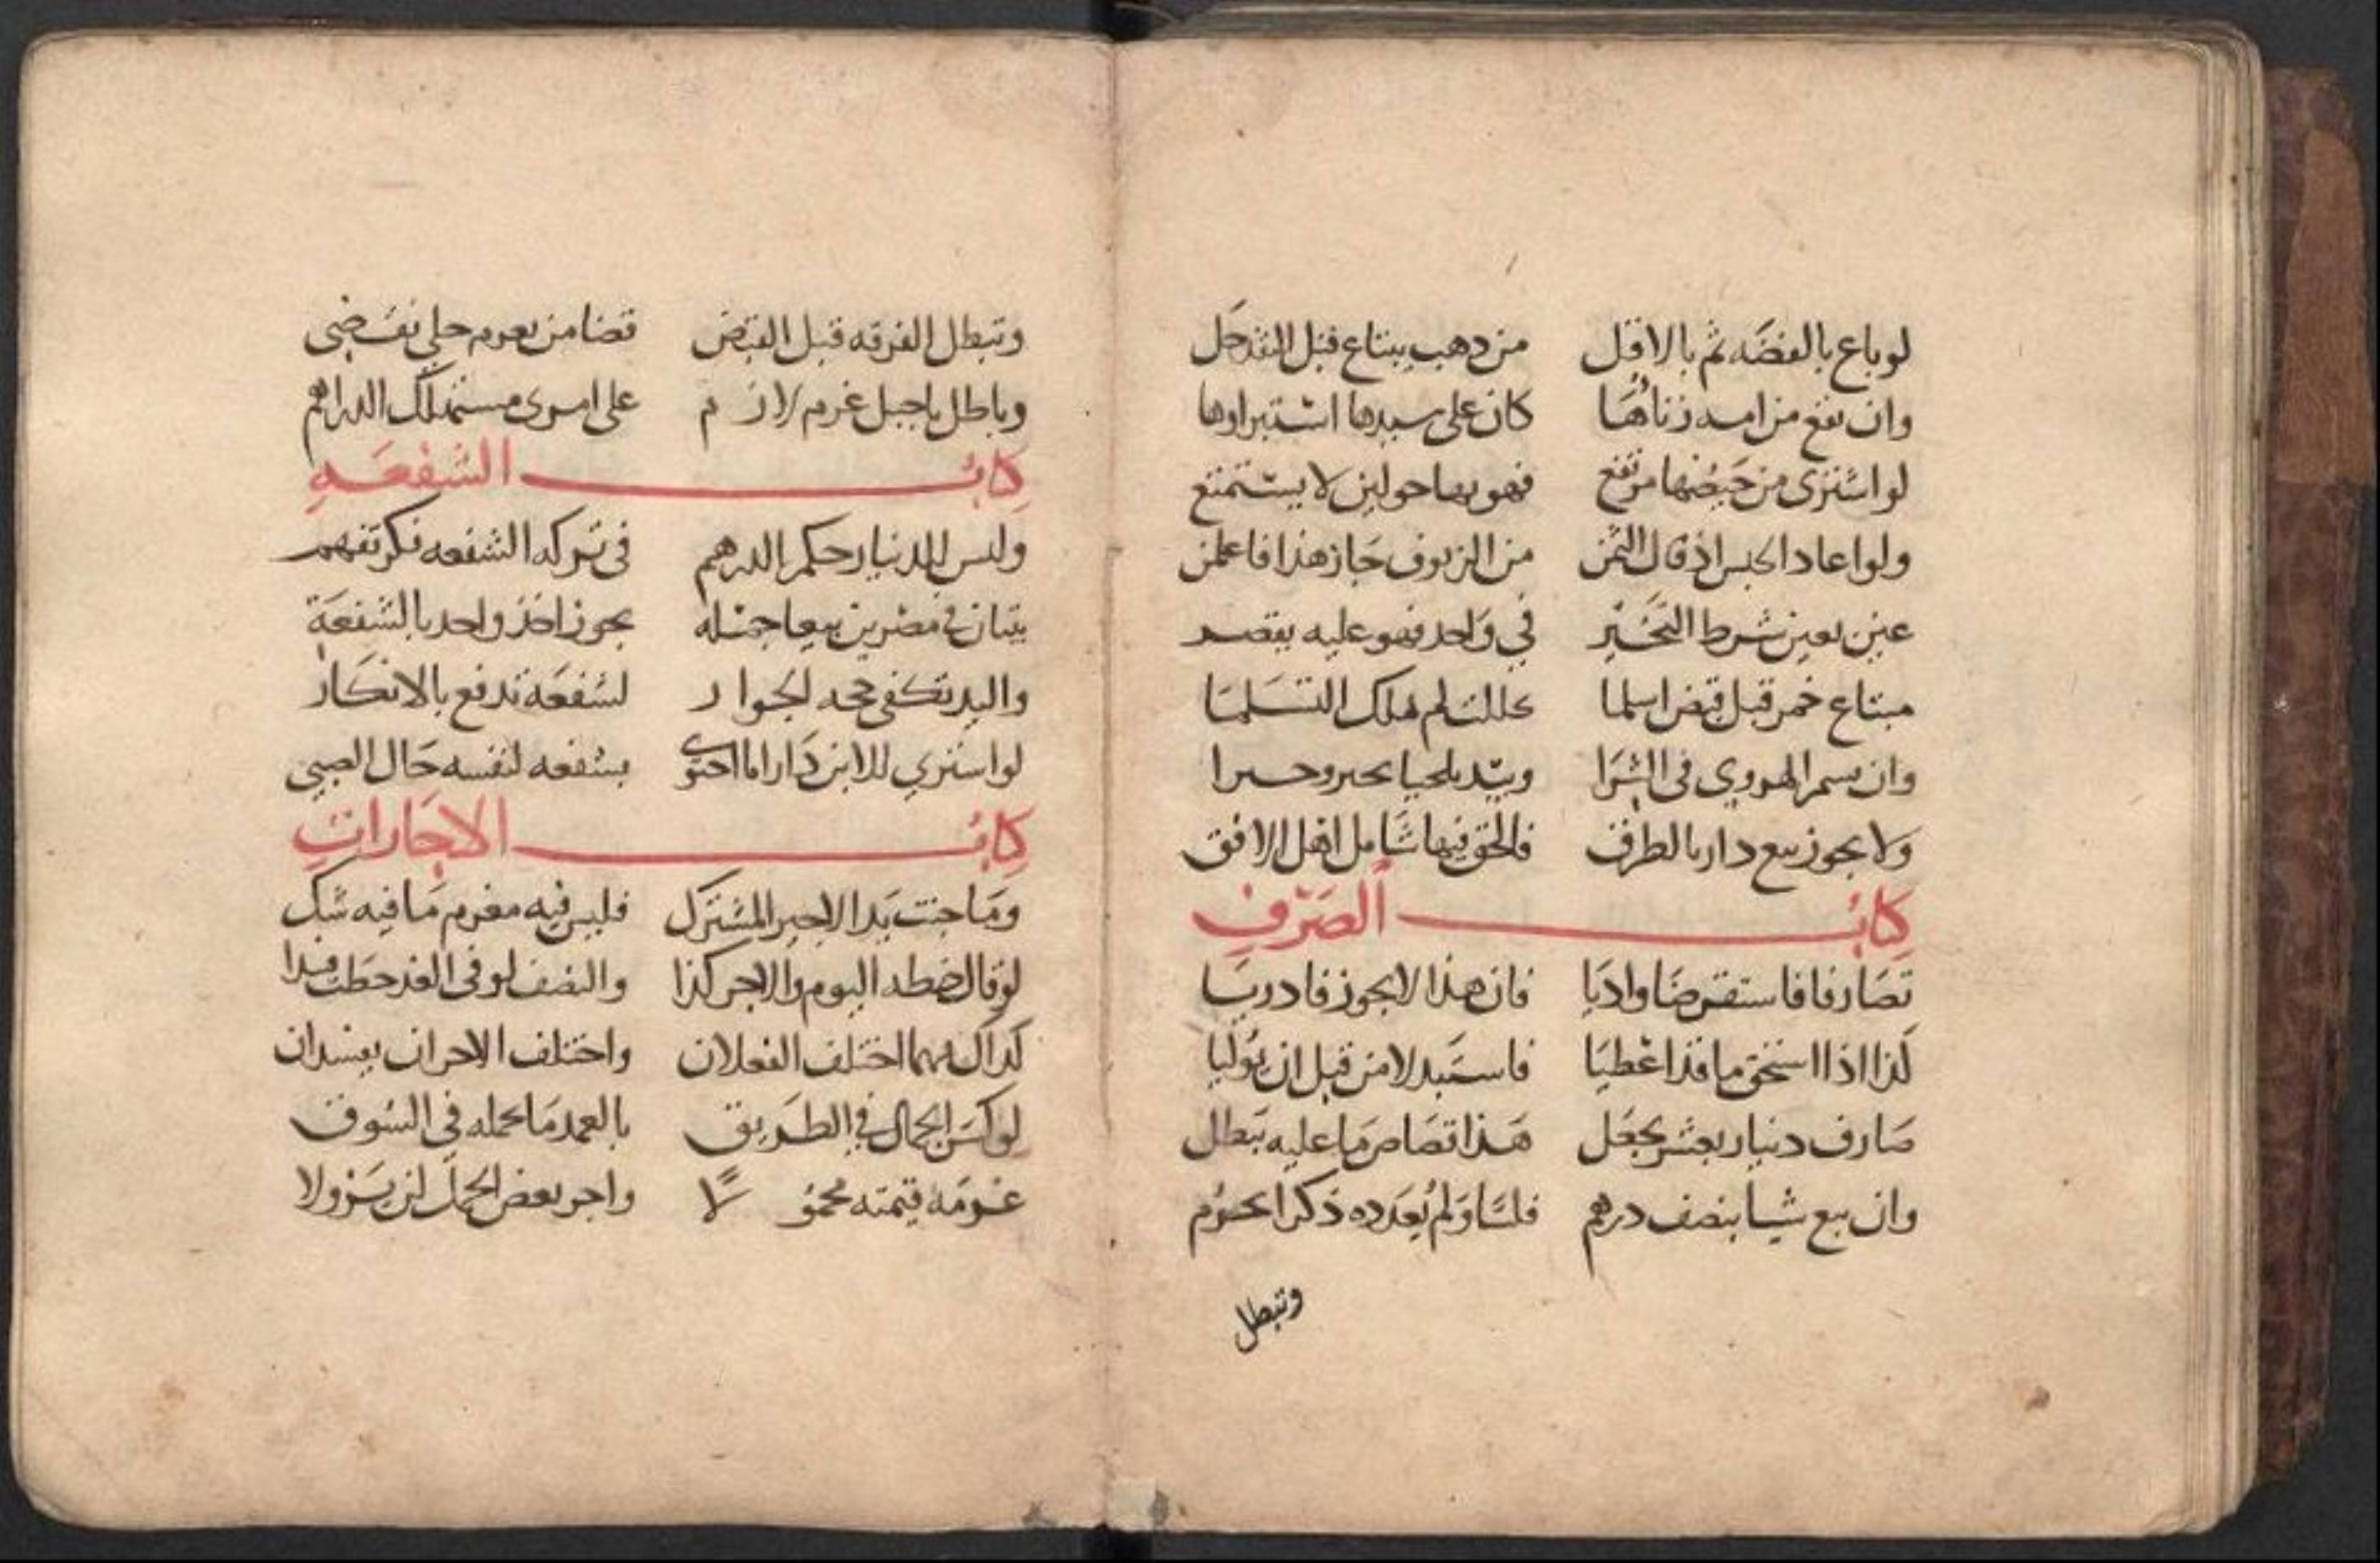 لو باع بالفضه ثم بالاقل من دهب يبتاع قبل النقد حل
وان تقع من امه زناها كان على سيدها استبراوها
لو اشترى من حيضها مرتفع فهو بها حولين لا يستمتع
ولو اعاد الجنس اذ قال الثمن من الزيوف جاز هذا فاعلمن
عين بعين شرط التخير في واحد فهو عليه يقصر
مبتاع خمر قبل قبض اسلما لم التسلما
وان الهروي في الشرا
ولا يجوز بيع دار بالطرق فالحق فيها شامل اهل الافق
كتاب الصرف
تصارفا فاستقرضا واديا فان هذا لا يجوز فادريا
كذا اذا استحق ما قد اعطيا فاستبدلا من قبل ان يوليا
صارف دنيار بعشر يجعل هذا تصاص ما عليه يبطل
وان بيع شيا بنصف درهم فلسا ولم يعدده ذكرا يحرم
وتبطل
وتبطل الفرقه قبل القبض قضا من يغرم حلي نفضي
وباطل تاجيل غرم لازم على امرى مستهلك الدراهم
كتاب الشفعه
وليس للدنيار حكم الدرهم في تركه الشفعه فكر تفهم
بيتان في مصرين بيعا جمله يجوز اخذ واحد بالشفعة
واليد تكفي حجه الجوار لشفعة تدفع بالانكار
لو اشتري للابن دارا ما احتوى بشفعه لنفسه حال الصبي
كتاب الاجارات
وما جنت يد الاجير المشترك فليس فيه مغرم ما فيه شك
لو قال خطه اليوم والاجر كذا والنصف لو في الغد خطت فذا
كذاك مهما اختلف الفعلان واختلف الاجران يفسدان
لو كسر الحمال في الطريق بالعمد ما يحمله في السوق
غرمه قيمته محمولا واجر بعض الحمل لن يزولا